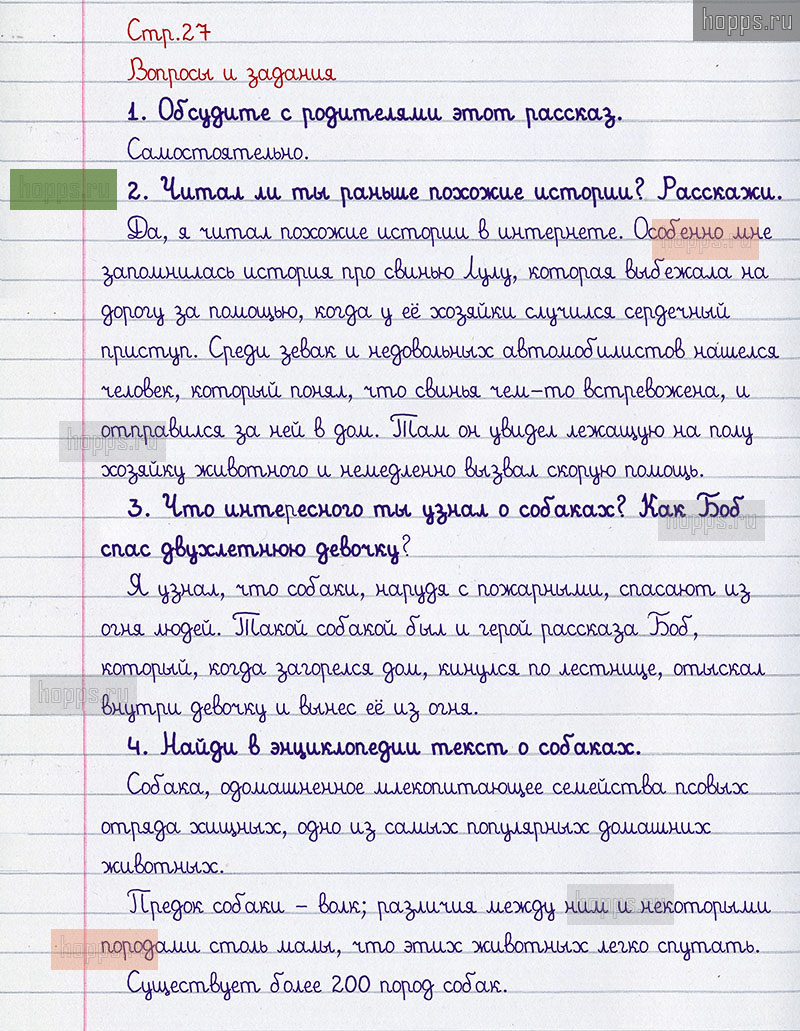 hopps.ru
Стр.27
Вопросы и задания
1. Обсудите с родителями этот рассказ.
Самостоятельно.
hopps.ru
2. Читал ли ты раньше похожие истории? Расскажи.
Да, я читал похожие истории в интернете. Особенно мне
hopps.ru
запомнилась история про свинью Лулу, которая выбежала на
дорогу за помощью, когда у её хозяйки случился сердечный
приступ. Среди зевак и недовольных автомобилистов нашелся
человек, который понял, что свинья чем-то встревожена, и
отправился за ней в дом. Там он увидел лежащую на полу
hopps.ru
хозяйку животного и немедленно вызвал скорую помощь.
3. Что интересного ты узнал о собаках? Как Боб
hopps.ru
спас двухлетнюю девочку?
Я узнал, что собаки, нарудя с пожарными, спасают из
огня людей. Такой собакой был и герой рассказа Боб,
который, когда загорелся дом, кинулся по лестнице, отыскал
hopps.ru
внутри девочку и вынес её из огня.
4. Найди в энциклопедии текст о собаках.
Собака, одомашненное млекопитающее семейства псовых
отряда хищных, одно из самых популярных домашних
животных.
Предок собаки – волк; различия между ним и некоторыми
hopps.ru
породами столь малы, что этих животных легко спутать.
hopps.ru
Существует более 200 пород собак.